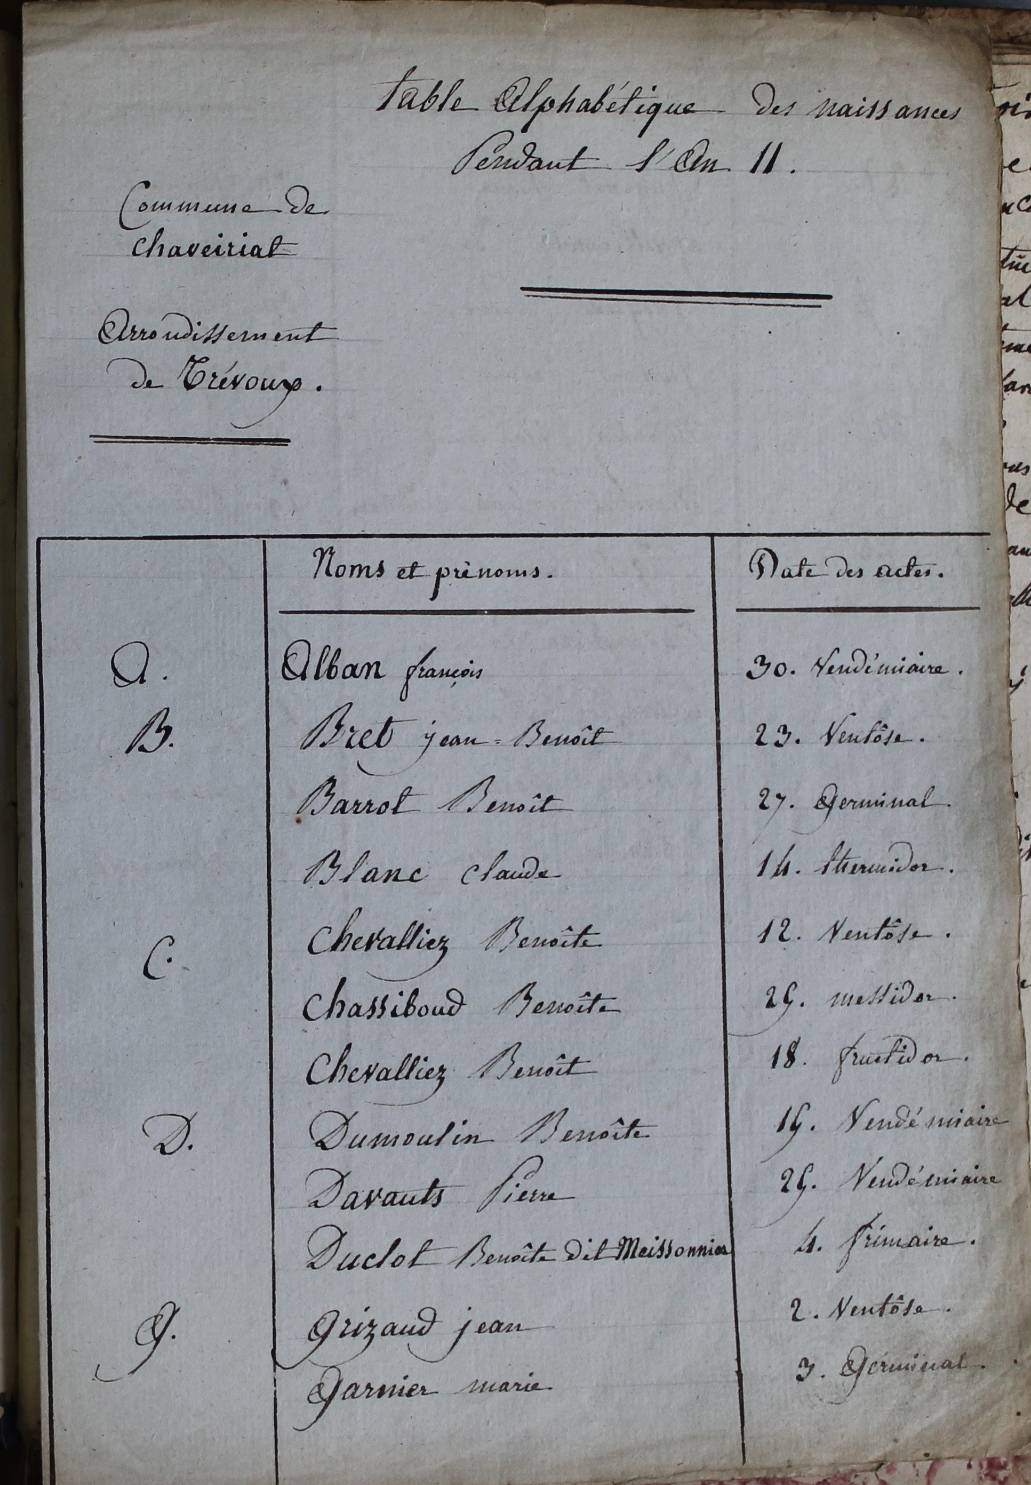 table Alphabétique des naissances
Pendant l'An 11.
Commune de
Chaveiriat
Arrondissement
de Trévoux.
Noms et prènoms. Date des actes.
A. Alban françois 30. Vendémiaire.
B. Bret jean-Benoît 23. Ventôse.
Barrot Benoît 27. Germinal.
Blanc claude 14. thermidor.
C. Chevalliez Benoîte 12. Ventôse.
Chassiboud Benoîte 29. messidor.
Chevalliez Benoît 18. fructidor.
D. Dumoulin Benoîte 19. Vendémiaire
Davauts Pierre 29. Vendémiaire
Duclot Benoîte dit Meissonnier 4. frimaire.
G. Grizaud jean 2. Ventôse.
Garnier marie 3. Germinal.